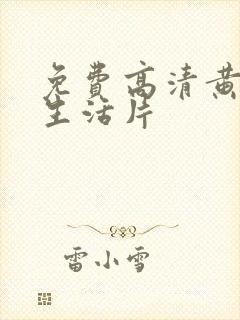 免费高清黄
生活片
雷小雪